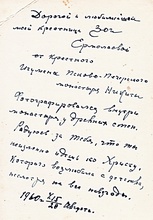 Дорогой и любимейшей
моей крестнице Зое
Ермолаевой
от крестного
Игумена Псково-Печерского
монастыря
Фотографировался внутри
монастыря у древних стен.
Радуюсь за тебя, что ты
неизменно идешь ко Христу,
Которого возлюбила с детства,
несмотря на все невзгоды.
1960 г.
28 Августа.